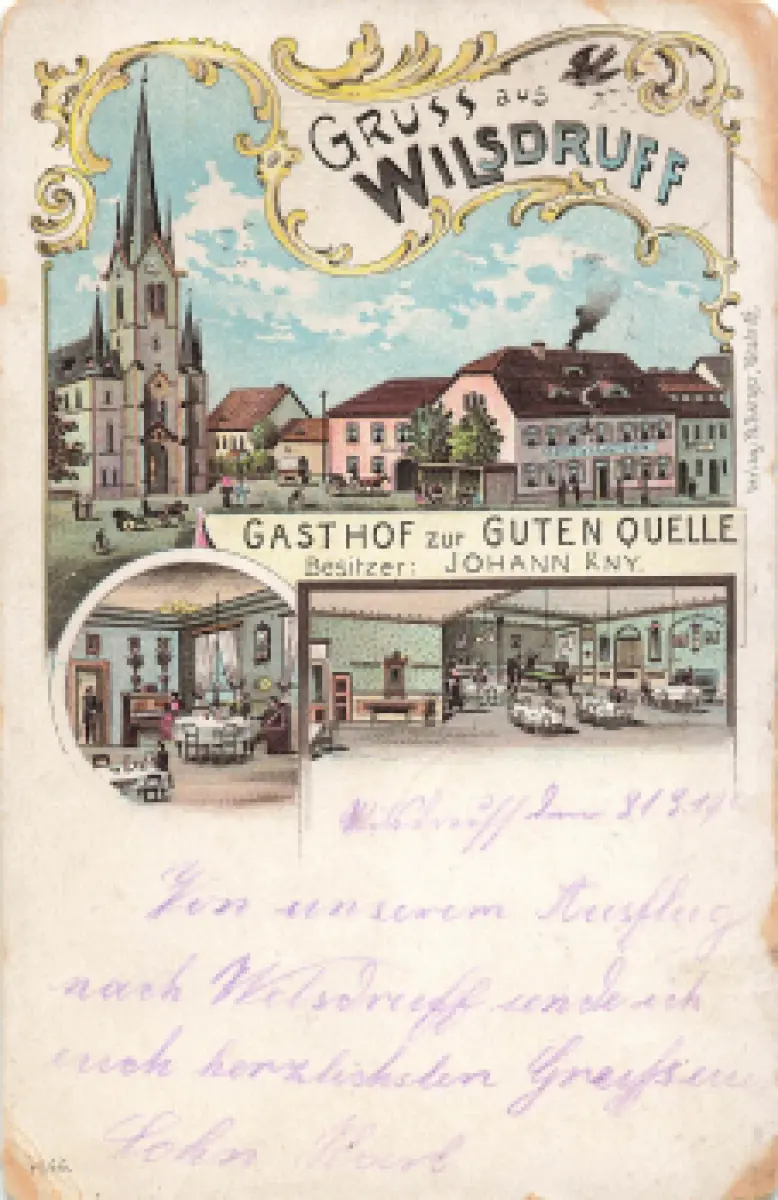 GRUSS aus
WILSDRUFF
GASTHOF zur GUTEN QUELLE
Besitzer: JOHANN KNY.
Wilsdruff den
Von unserem Ausflug
nach Wilsdruff sende ich
euch herzlichsten
Sohn Karl